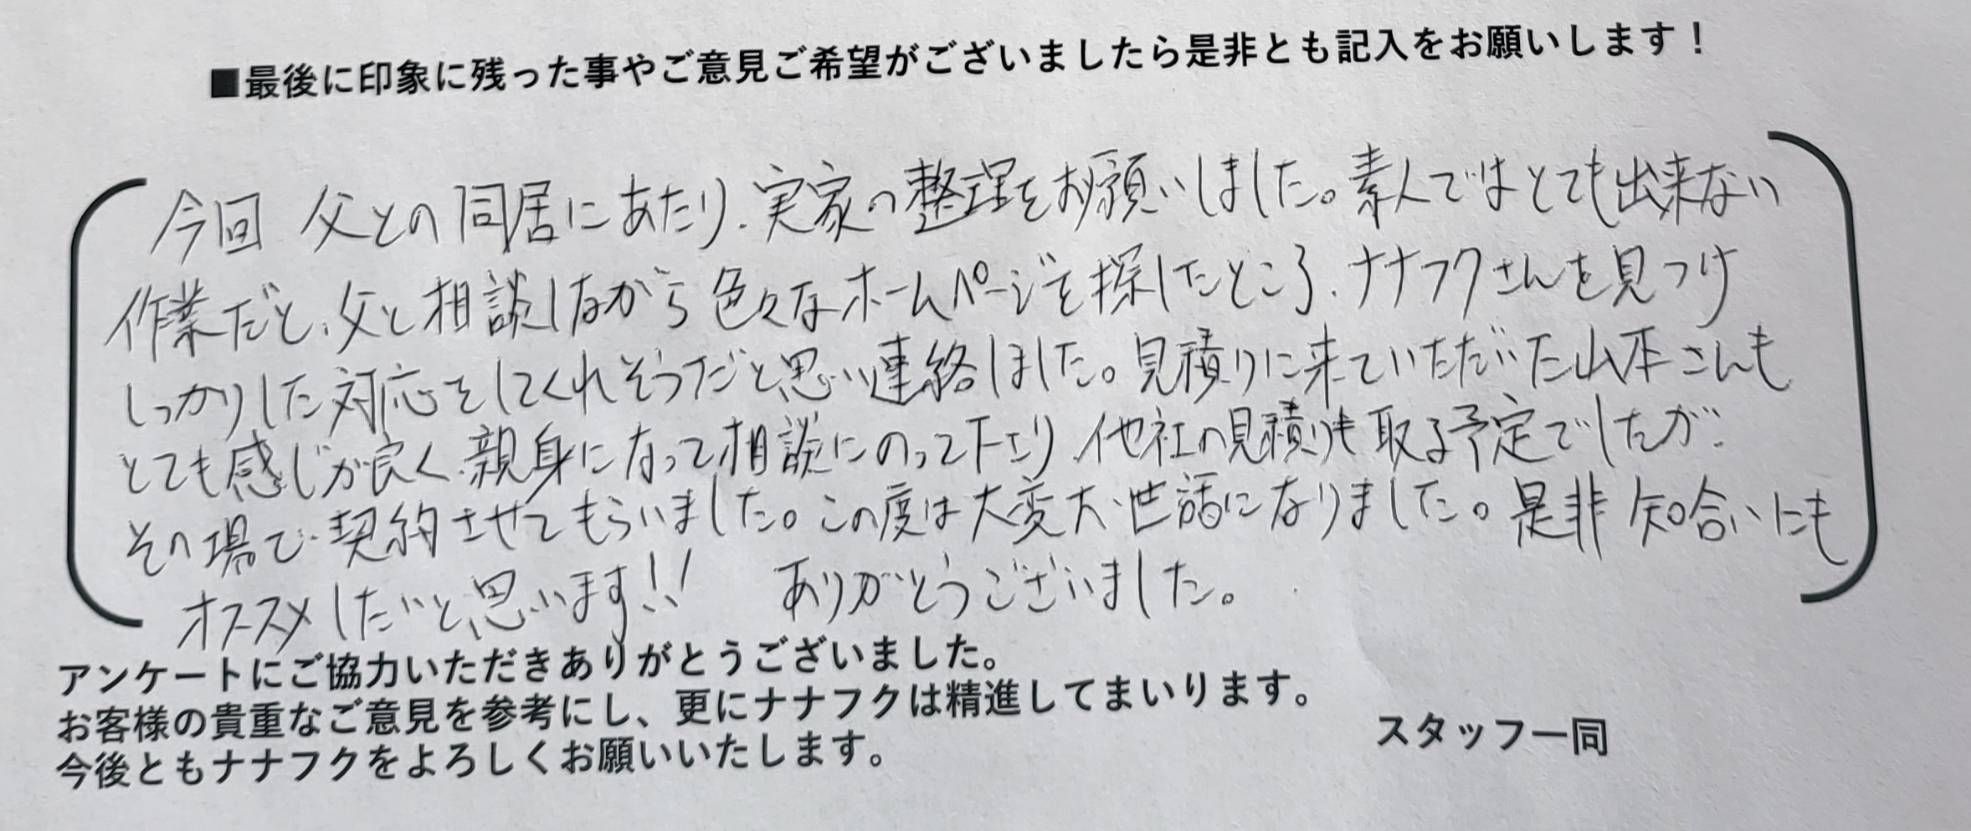 ■最後に印象に残った事やご意見ご希望がございましたら是非とも記入をお願いします！
今回 父との同居にあたり、実家の整理をお願いしました。素人ではとても出来ない
作業だと、父と相談しながら色々なホームページを探したところ、ナナフクさんを見つけ
しっかりした対応をしてくれそうだと思い連絡しました。見積りに来ていただいた山本さんも
とても感じが良く、親身になって相談にのって下さり、他社の見積りも取る予定でしたが、
その場で契約させてもらいました。この度は大変お世話になりました。是非知合いにも
オススメしたいと思います!! ありがとうございました。
アンケートにご協力いただきありがとうございました。
お客様の貴重なご意見を参考にし、更にナナフクは精進してまいります。
今後ともナナフクをよろしくお願いいたします。
スタッフ一同